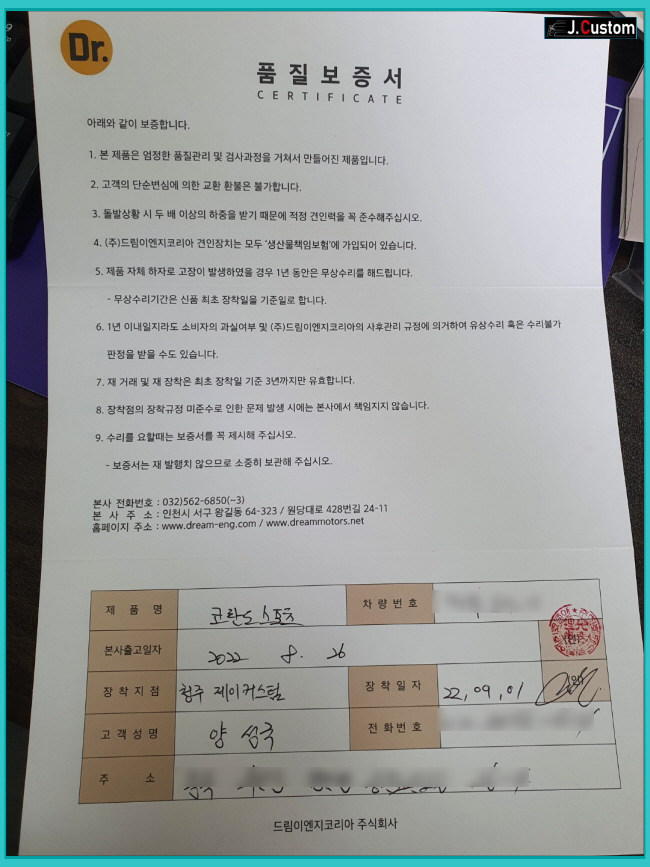 J.Custom
Dr.
품질보증서
CERTIFICATE
아래와 같이 보증합니다.
1. 본 제품은 엄정한 품질관리 및 검사과정을 거쳐서 만들어진 제품입니다.
2. 고객의 단순변심에 의한 교환 환불은 불가합니다.
3. 돌발상황 시 두 배 이상의 하중을 받기 때문에 적정 견인력을 꼭 준수해주십시오.
4. (주)드림이엔지코리아 견인장치는 모두 '생산물책임보험'에 가입되어 있습니다.
5. 제품 자체 하자로 고장이 발생하였을 경우 1년 동안은 무상수리를 해드립니다.
- 무상수리기간은 신품 최초 장착일을 기준일로 합니다.
6. 1년 이내일지라도 소비자의 과실여부 및 (주)드림이엔지코리아의 사후관리 규정에 의거하여 유상수리 혹은 수리불가
판정을 받을 수도 있습니다.
7. 재 거래 및 재 장착은 최초 장착일 기준 3년까지만 유효합니다.
8. 장착점의 장착규정 미준수로 인한 문제 발생 시에는 본사에서 책임지지 않습니다.
9. 수리를 요할때는 보증서를 꼭 제시해 주십시오.
- 보증서는 재 발행치 않으므로 소중히 보관해 주십시오.
본사 전화번호 : 032)562-6850(~3)
본 사 주 소 : 인천시 서구 왕길동 64-323 / 원당대로 428번길 24-11
홈페이지 주소 : www.dream-eng.com / www.dreammotors.net
제 품 명 코란도스포츠 차 량 번 호
본사출고일자 2022 8. 26 (인)
장 착 지 점 청주 제이커스텀 장 착 일 자 22, 09, 01 (인)
고 객 성 명 양 성국 전 화 번 호
주 소
드림이엔지코리아 주식회사